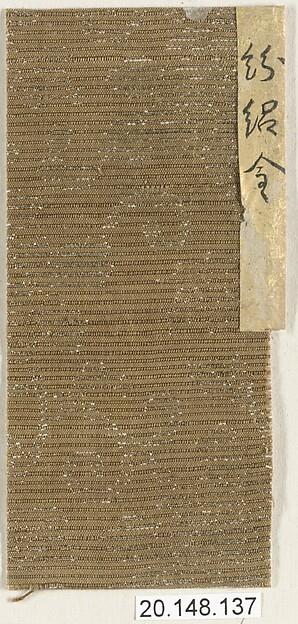 紛紹金
20.148.137